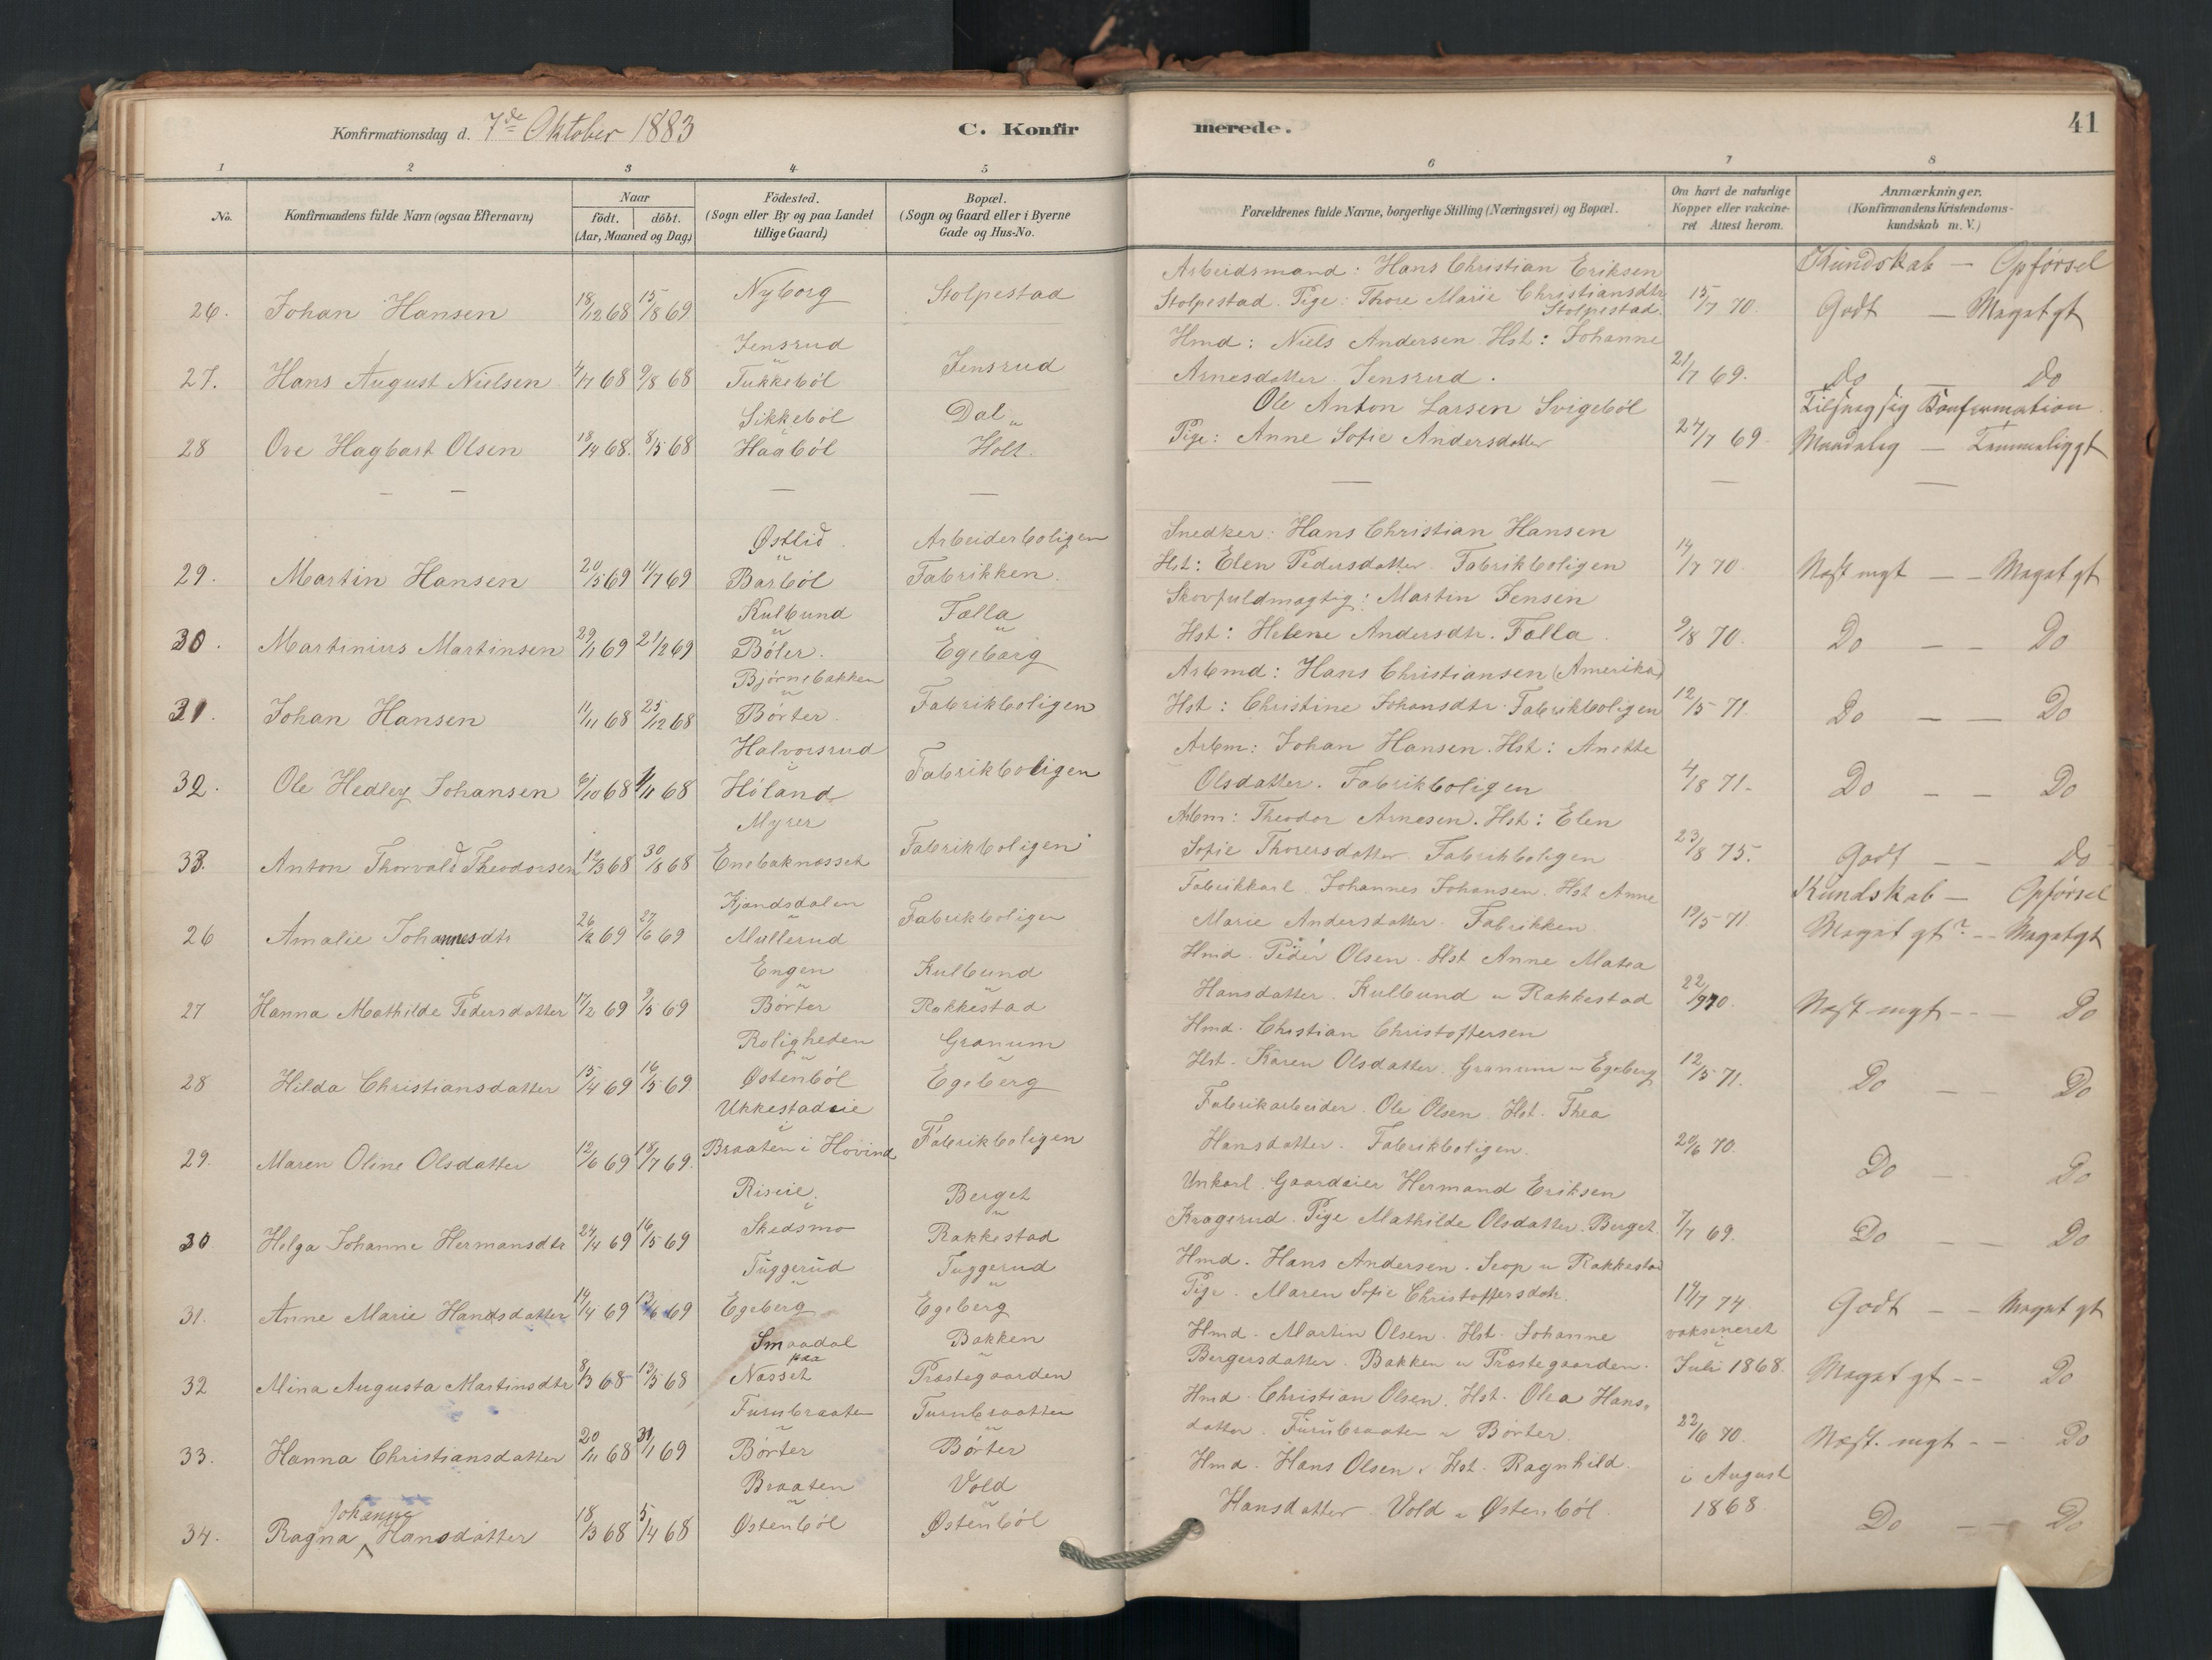 Konfirmationsdag d. 7de Oktober 1883 C. Konfirmerede. 41
1 2 3 4 5 6 7 8
No. Konfirmandens fulde Navn (ogsaa Efternavn) Naar födt. döbt. (Aar, Maaned og Dag.) Födested. (Sogn eller By og paa Landet tillige Gaard) Bopæl. (Sogn og Gaard eller i Byerne Gade og Hus-No. Forældrenes fulde Navne, borgerlige Stilling (Næringsvei) og Bopæl. Om havt de naturlige Kopper eller vakcineret. Attest herom. Anmærkninger. (Konfirmandens Kristendomskundskab m. V.)
Arbeidsmand: Hans Christian Eriksen Kundskab — Opførsel
26. Johan Hansen 18/12 68 15/8 69 Nyborg Stolpestad Stolpestad. Pige: Thore Marie Christiansdtr Stolpestad. 15/7 70. Godt — Megetgt
Jensrud Hmd: Niels Andersen. Hst: Johanne
27. Hans August Nielsen 4/7 68 9/8 68 Tukkeböl Jensrud Arnesdatter. Jensrud. 21/7 69. Do — Do
Sikkeböl Dal Ole Anton Larsen Svigeböl Konfirmation.
28 Ove Hagbart Olsen 18/4 68. 8/5 68 Haaböl Holt. Pige: Anne Sofie Andersdatter 24/7 69 Maadelig — Temmeliggt
Østlid Arbeiderboligen Snedker: Hans Christian Hansen
29. Martin Hansen 20/5 69 11/7 69 Barböl Fabrikken. Hst: Elen Pedersdatter. Fabrikboligen 14/7 70. Næst mgt — – Meget gt
Kulbund Falla Skovfuldmægtig: Martin Jensen
30. Martinius Martinsen 29/1 69 21/2 69 Böler. Egeberg Hst: Helene Andersdtr. Falla. 9/8 70. Do – – Do
Björnebakken Arbmd: Hans Christiansen (Amerika)
31. Johan Hansen 11/11 68 25/12 68 Börter. Fabrikboligen Hst: Christine Johansdtr. Fabrikboligen 12/5 71. Do — — Do
Halvorsrud Arbm: Johan Hansen. Hst: Anette
32. Ole Hedley Johansen 6/10 68 1/11 68 Höland Fabrikboligen Olsdatter. Fabrikboligen 4/8 71. Do – – Do
Myrer Arbm: Theodor Arnesen. Hst: Elen
33. Anton Thorvald Theodorsen 12/3 68 30/8 68 Enebaknæsset Fabrikboligen Sofie Thorersdatter. Fabrikboligen 23/8 75. Godt – – Do
Kjændsdalen Fabrikkarl. Johannes Johansen. Hst Anne Kundskab — Opførsel
26 Amalie Johannesdtr 26/2 69 27/6 69 Müllerud Fabrikboligen Marie Andersdatter. Fabrikken 19/5 71. Meget gt? -- Megetgt
Engen Kulbund Hmd. Peder Olsen. Hst Anne Matea
27 Hanna Mathilde Pedersdatter 17/2 69 9/5 69 Börter Rakkestad Hansdatter. Kulbund u Rakkestad 22/9 70. Næst mgt – – – Do
Roligheden Granum Hmd. Christian Christoffersen
28 Hilda Christiansdatter 15/4 69 16/5 69. Østenböl Egeberg Hst. Karen Olsdatter. Granum u Egeberg 12/5 71. Do — Do
Ukkestadeie Fabrikarbeider. Ole Olsen. Hst. Thea
29. Maren Oline Olsdatter 12/6 69 18/7 69. Braaten i Hövind Fabrikboligen Hansdatter. Fabrikboligen. 20/6 70. Do — Do
Riseie. Berget Unkarl. Gaardeier Hermand Eriksen
30 Helga Johanne Hermansdtr 24/4 69 16/5 69 Skedsmo Rakkestad Kragerud. Pige Mathilde Olsdatter. Berget. 7/7 69. Do — – Do
Tüggerüd Tuggerud Hmd. Hans Andersen. Seop u Rakkestad
31. Anne Marie Handsdatter 14/4 69 13/6 69 Egeberg Egeberg Pige. Maren Sofie Christoffersdtr. 19/7 74 Godt – – Meget gt
Smaadal Bakken Hmd. Martin Olsen. Hst. Johanne vaksineret
32 Mina Augusta Martinsdtr 8/3 68 13/5 68 paa Næsset Præstegaarden Bergersdatter. Bakken u Præstegaarden. Juli 1868. Meget gt -- Do
Furubraaten Furubraaten Hmd. Christian Olsen. Hst. Olea Hans-
33. Hanna Christiansdatter 20/11 68 31/1 69 Börter Börter datter. Furubraaten u Börter. 22/6 70. Næst. mgt – – Do
Braaten Vold Hmd. Hans Olsen. Hst. Ragnhild. i August
34. Ragna Johanne Hansdatter 18/3 68 5/4 68 Østenböl Østenböl Hansdatter Vold u Østenböl. 1868. Do — – Do